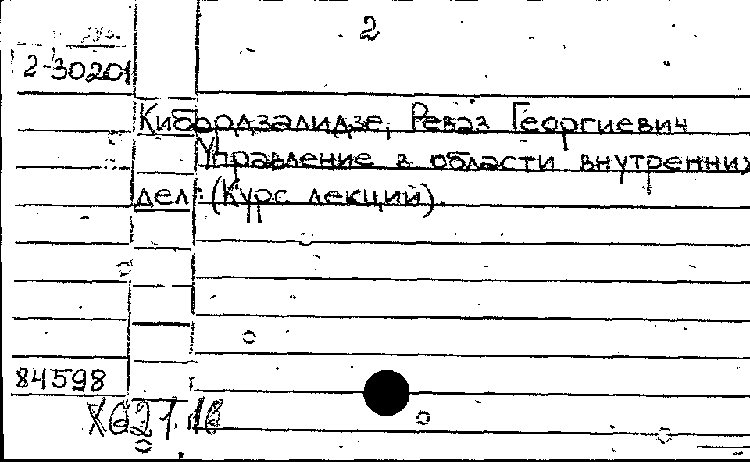 2
2-30201
Кибордзалидзе, Реваз Георгиевич
Управление в области внутренних
дел: (Курс лекций).
84598
Х621.18